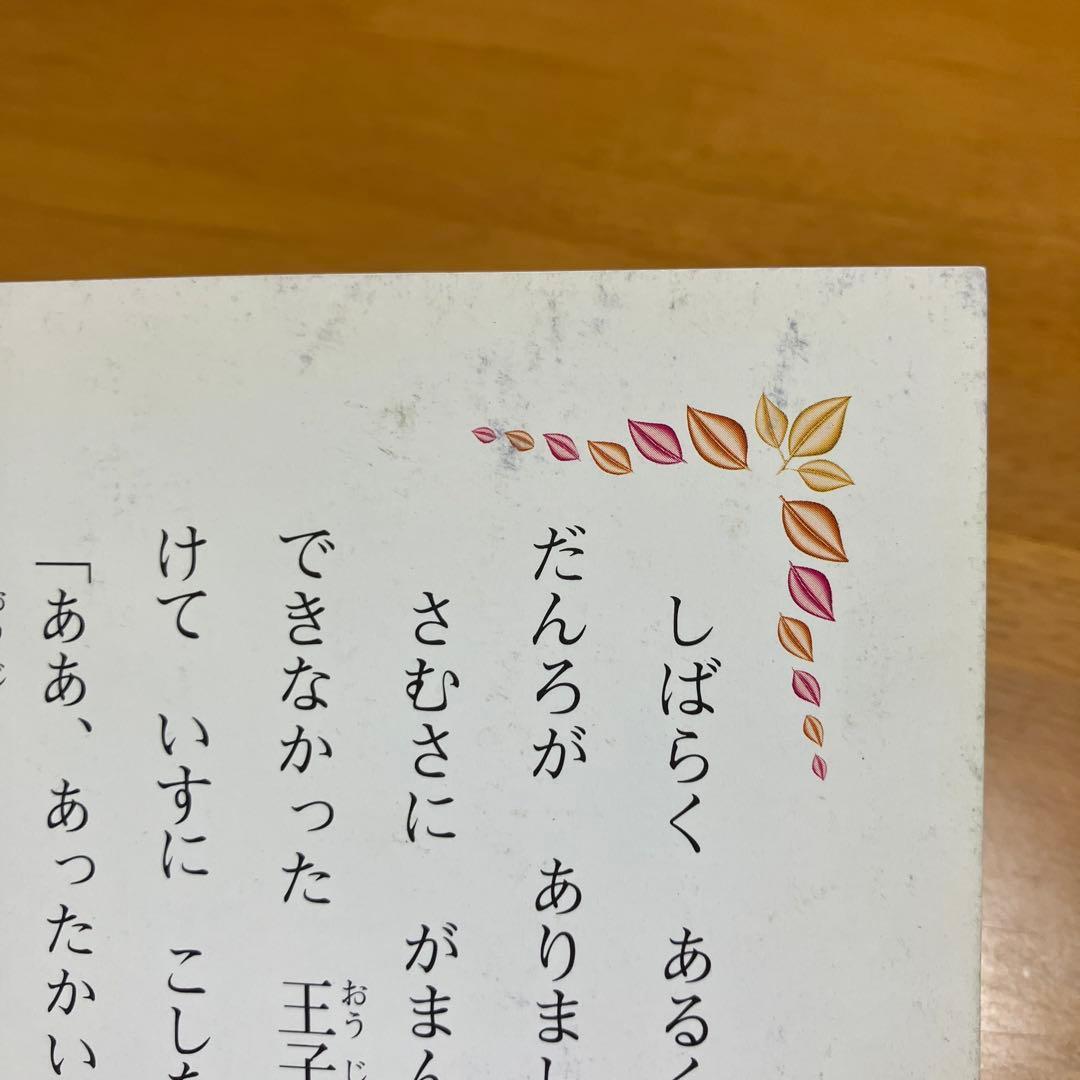 しばらく　ある
だんろが　ありまし
さむさに　がまん
できなかった　王子
けて　いすに　こし
「ああ、あったかい
おうじ